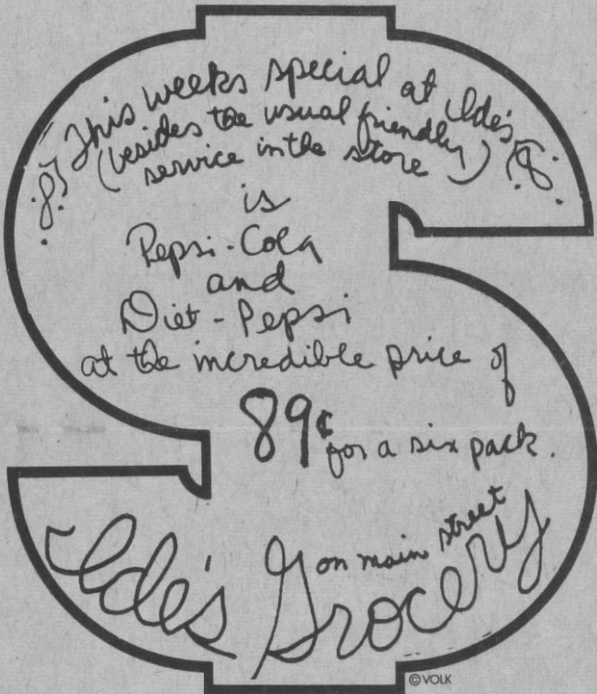 This weeks special at Ide's
(besides the usual friendly)
service in the store
is
Pepsi-Cola
and
Diet-Pepsi
at the incredible price of
89¢ for a six pack.
Ide's Grocery
on main street
©VOLK